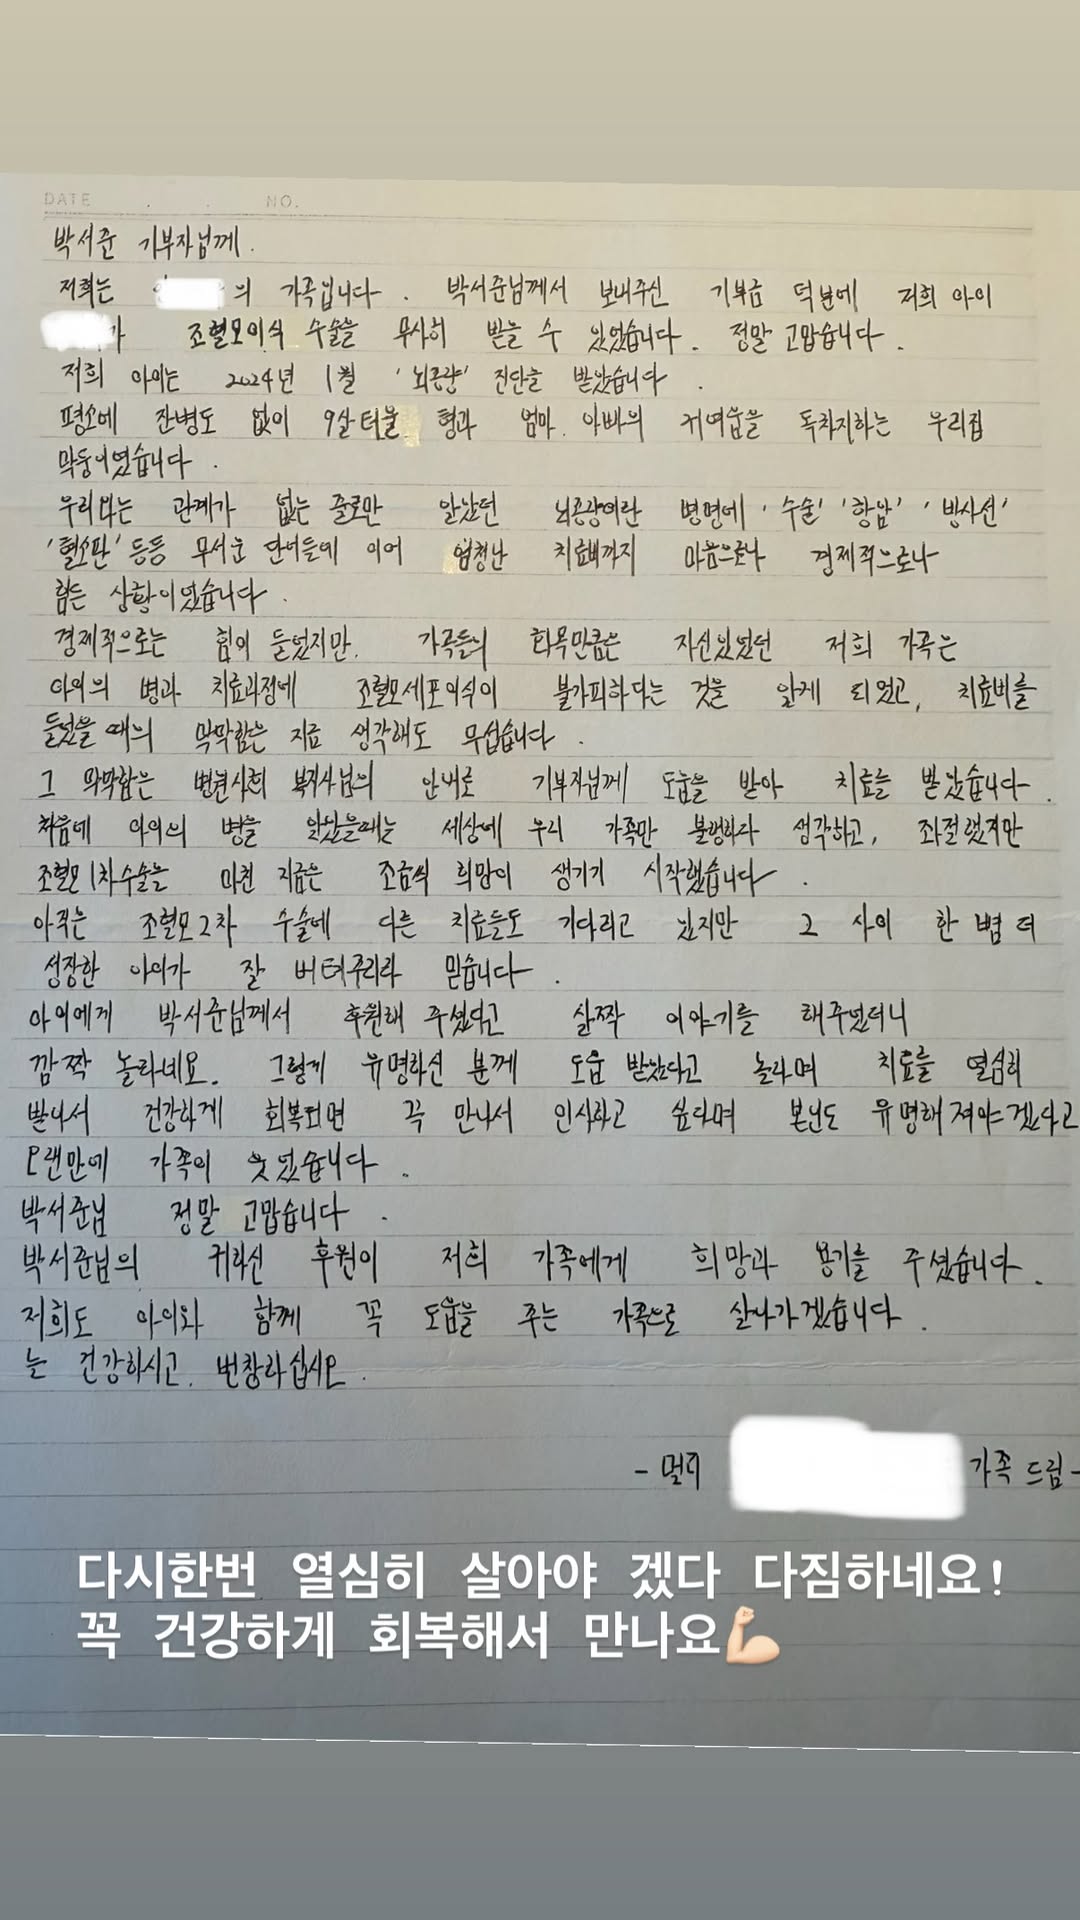 DATE . . NO.
박서준 기부자님께.
저희는 의 가족입니다. 박서준님께서 보내주신 기부금 덕분에 저희 아이
가 조혈모이식 수술을 무사히 받을 수 있었습니다. 정말 고맙습니다.
저희 아이는 2024년 1월 '뇌종양' 진단을 받았습니다.
평소에 잔병도 없이 9살터울 형과 엄마. 아빠의 귀여움을 독차지하는 우리집
막둥이였습니다.
우리와는 관계가 없는 줄로만 알았던 뇌종양이란 병명에 '수술' '항암' '방사선'
'혈소판' 등등 무서운 단어들에 이어 엄청난 치료비까지 마음으로나 경제적으로나
힘든 상황이였습니다.
경제적으로는 힘이 들었지만. 가족들의 화목만큼은 자신있었던 저희 가족은
아이의 병과 치료과정에 조혈모세포이식이 불가피하다는 것을 알게 되었고, 치료비를
들었을 때의 막막함은 지금 생각해도 무섭습니다.
그 막막함은 병원사회 복지사님의 안내로 기부자님께 도움을 받아 치료를 받았습니다.
처음에 아이의 병을 알았을때는 세상에 우리 가족만 불행하다 생각하고, 좌절했지만
조혈모 1차수술을 마친 지금은 조금씩 희망이 생기기 시작했습니다.
아직은 조혈모 2차 수술에 다른 치료들도 기다리고 있지만 그 사이 한 뼘 더
성장한 아이가 잘 버텨주리라 믿습니다.
아이에게 박서준님께서 후원해 주셨다고 살짝 이야기를 해주었더니
깜짝 놀라네요. 그렇게 유명하신 분께 도움 받았다고 놀라며 치료를 열심히
받아서 건강하게 회복되면 꼭 만나서 인사하고 싶다며 본인도 유명해져야겠다고
오랜만에 가족이 웃었습니다.
박서준님 정말 고맙습니다.
박서준님의 귀하신 후원이 저희 가족에게 희망과 용기를 주셨습니다.
저희도 아이와 함께 꼭 도움을 주는 가족으로 살아가겠습니다.
늘 건강하시고. 번창하십시오.
- 멀리 가족 드림-
다시한번 열심히 살아야 겠다 다짐하네요!
꼭 건강하게 회복해서 만나요💪🏻